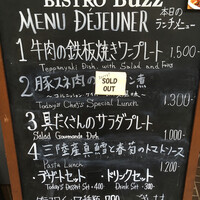 BISTRO BUZZ
MENU DÉJEUNER
本日の
ランチメニュー
1 牛肉の鉄板焼きワンプレート
1,500-
Teppanyaki Dish, with Salad and
2 豚スネ肉の
SOLD
OUT
煮
Today's Chef's Special Lunch
1,300-
3 具だくさんのサラダプレート
Salad Gourmande Dish
1,000-
4 三陸産真鱈と春菊のトマトソース
Pasta Lunch
1,200-
デザートセット ・ドリンクセット
Today's Dessert Set・400 Drink Set・300